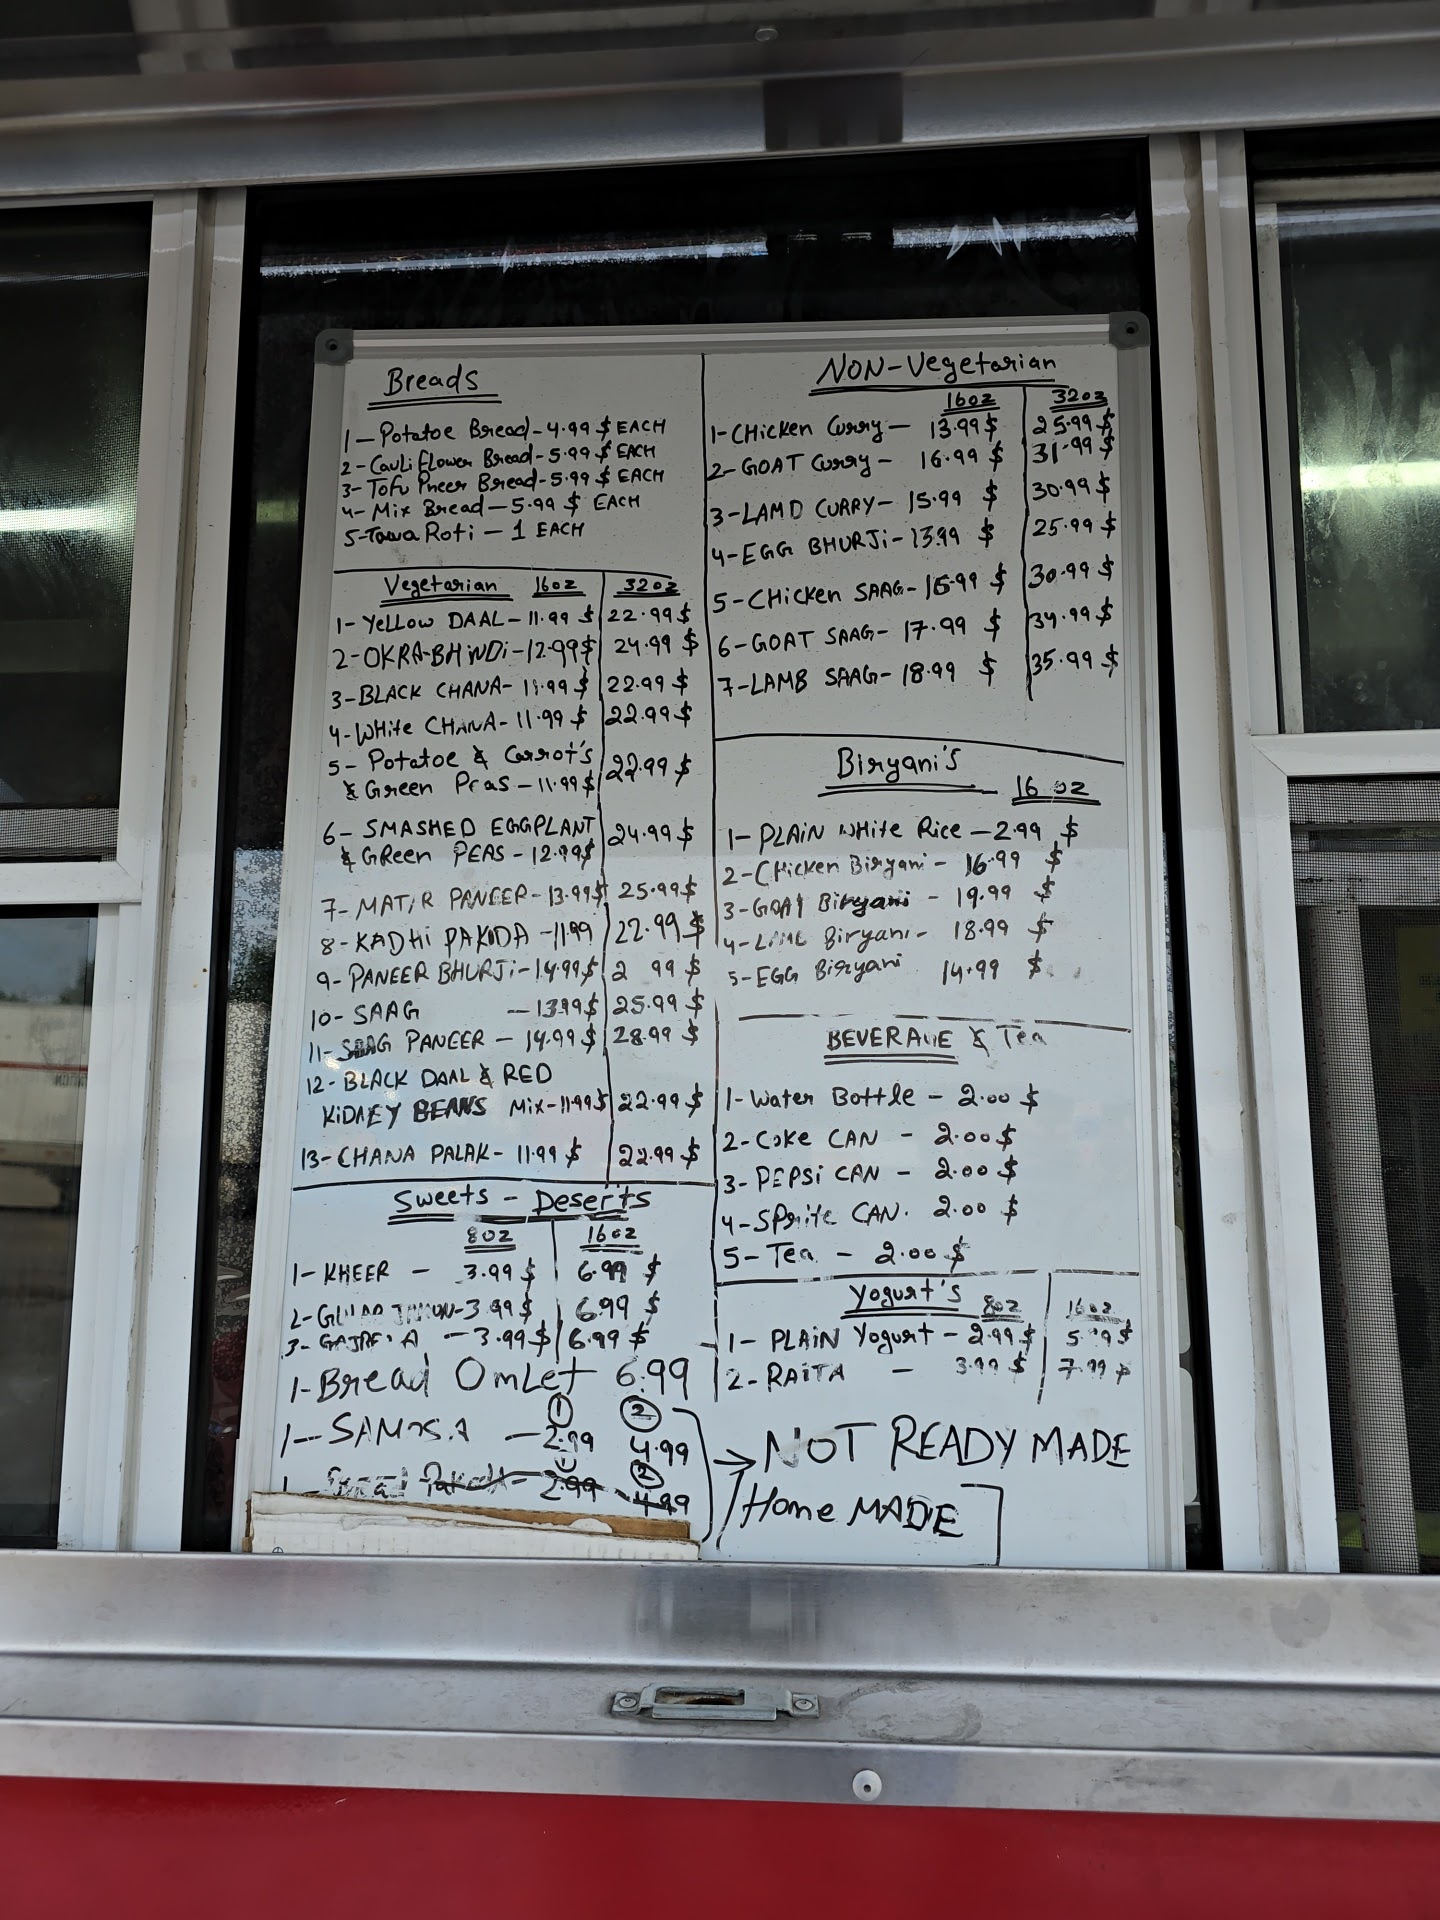 Breads
1-Potatoe Bread-4.99 $ EACH
2-Cauliflower Bread-5.99 $ EACH
3-Tofu Pneer Bread-5.99 $ EACH
4-Mix Bread-5.99 $ EACH
5-Tawa Roti-1 EACH
Vegetarian 16oz 32oz
1-Yellow DAAL-11.99 $ 22.99 $
2-OKRA-BHiNDi-12.99$ 24.99 $
3-BLACK CHANA-11.99 $ 22.99 $
4-White CHANA-11.99 $ 22.99 $
5-Potatoe & Carrot's
& Green Peas-11.99 $ 22.99 $
6-SMASHED EGGPLANT 24.99 $
& GReen PEAS-12.99$
7-MATAR PANEER-13.99$ 25.99 $
8-KADHi PAKODA-11.99 22.99 $
9-PANEER BHURJi-14.99$ 2 99 $
10-SAAG -13.99$ 25.99 $
11-SAAG PANEER-14.99 $ 28.99 $
12-BLACK DAAL & RED
KiDNEY BEANS Mix-11.99$ 22.99 $
13-CHANA PALAK-11.99 $ 22.99 $
Sweets-Deserts
8oz 16oz
1-KHEER - 3.99 $ 6.99 $
2-GULAB JAMUN-3.99 $ 6.99 $
3- - 3.99 $ 6.99 $
1-Bread OmLet 6.99
1 2
1-SAMOSA - 2.99 4.99
1 2
1- Bread Pakoda- 2.99 4.99
NON-Vegetarian
16oz 32oz
1-CHicken Curry- 13.99 $ 25.99 $
2-GOAT Curry- 16.99 $ 31.99 $
3-LAMD CURRY-15.99 $ 30.99 $
4-EGG BHURJi-13.99 $ 25.99 $
5-CHicken SAAG- $ 30.99 $
6-GOAT SAAG-17.99 $ 34.99 $
7-LAMB SAAG-18.99 $ 35.99 $
Biryani's
16 oz
1-PLAiN White Rice-2.99 $
2-CHicken Biryani-16.99 $
3-GOAT Biryani-19.99 $
4-LAMB Biryani-18.99 $
5-EGG Biryani 14.99 $
BEVERAGE & Tea
1-Water Bottle-2.00 $
2-Coke CAN-2.00 $
3-PEPSi CAN-2.00 $
4-SPrite CAN. 2.00 $
5-Tea-2.00 $
Yogurt's 8oz 16oz
1-PLAiN Yogurt-2.99 $ 5.99 $
2-RAiTA - 3.99 $ 7.99 $
NOT READY MADE
Home MADE